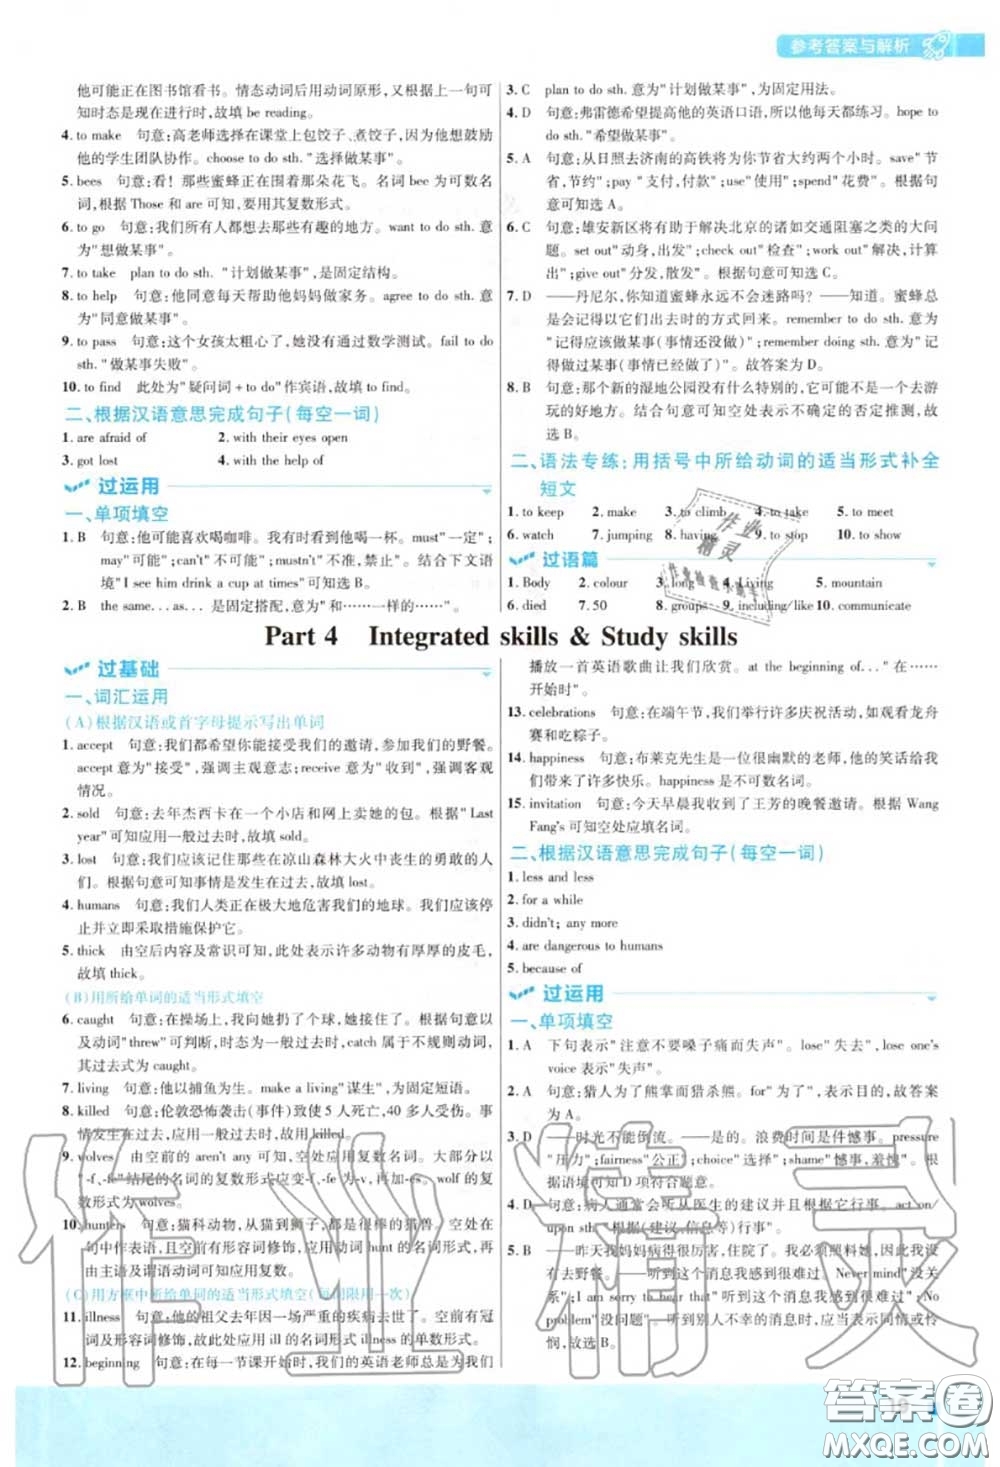 参考答案与解析
他可能正在图书馆看书。情态动词后用动词原形,又根据上一句可
知时态是现在进行时,故填 be reading.
4. to make 句意:高老师选择在课堂上包饺子、煮饺子,因为他想鼓励
他的学生团队协作。choose to do sth. "选择做某事"。
5. bees 句意:看!那些蜜蜂正在围着那朵花飞。名词 bee 为可数名
词,根据 Those 和 are 可知,要用其复数形式。
6. to go 句意:我们所有人都想去那些有趣的地方。want to do sth. 意
为"想做某事"。
7. to take plan to do sth. "计划做某事",是固定结构。
8. to help 句意:他同意每天帮助他妈妈做家务。agree to do sth. 意
为"同意做某事"。
9. to pass 句意:这个女孩太粗心了,她没有通过数学测试。fail to do
sth. "做某事失败"。
10. to find 此处为"疑问词+to do"作宾语,故填 to find。
二、根据汉语意思完成句子(每空一词)
1. are afraid of 2. with their eyes open
3. got lost 4. with the help of
过运用
一、单项填空
1. B 句意:他可能喜欢喝咖啡。我有时看到他喝一杯。must"一定";
may"可能";can't"不可能";mustn't"不准,禁止"。结合下文语
境"I see him drink a cup at times"可知选 B。
2. B the same...as... 是固定搭配,意为"和……一样的……"。
3. C plan to do sth. 意为"计划做某事",为固定用法。
4. D 句意:弗雷德希望提高他的英语口语,所以他每天都练习。hope to
do sth. "希望做某事"。
5. A 句意:从日照去济南的高铁将为你节省大约两个小时。save"节
省,节约";pay "支付,付款";use"使用";spend"花费"。根据句
意可知选 A。
6. C 句意:雄安新区将有助于解决北京的诸如交通阻塞之类的大问
题。set out"动身,出发";check out"检查";work out"解决,计算
出";give out"分发,散发"。根据句意可知选 C。
7. D ——丹尼尔,你知道蜜蜂永远不会迷路吗?——没错。蜜蜂总
是会记得以它们出去时的方式回来。remember to do sth. 意为
"记得应该做某事(事情还没做)";remember doing sth. 意为"记
得做过某事(事情已经做了)"。故答案为 D。
8. B 句意:那个新的湿地公园没有什么特别的,它可能不是一个去游
玩的好地方。结合句意可知空处表示不确定的否定推测,故
选 B。
二、语法专练:用括号中所给动词的适当形式补全
短文
1. to keep 2. make 3. to climb 4. to take 5. to meet
6. watch 7. jumping 8. having 9. to stop 10. to show
过语篇
1. Body 2. colour 3. long 4. Living 5. mountain
6. died 7. 50 8. groups 9. including/like 10. communicate
Part 4 Integrated skills & Study skills
过基础
一、词汇运用
(A)根据汉语或首字母提示写出单词
1. accept 句意:我们都希望你能接受我们的邀请,参加我们的野餐。
accept 意为"接受",强调主观意志;receive 意为"收到",强调客观
情况。
2. sold 句意:去年杰西卡在一个小店和网上卖她的包。根据"Last
year"可知应用一般过去时,故填 sold。
3. lost 句意:我们应该记住那些在凉山森林大火中丧生的勇敢的人
们。根据句意可知事情是发生在过去,故填 lost。
4. humans 句意:我们人类正在极大地危害我们的地球。我们应该停
止并立即采取措施保护它。
5. thick 由空后内容及常识可知,此处表示许多动物有厚厚的皮毛,
故填 thick。
(B)用所给单词的适当形式填空
6. caught 句意:在操场上,我向她扔了个球,她接住了。根据句意以
及动词"threw"可判断,时态为一般过去时,catch 属于不规则动词,其
过去式为 caught。
7. living 句意:他以捕鱼为生。make a living"谋生",为固定短语。
8. killed 句意:伦敦恐怖袭击(事件)致使 5 人死亡,40 多人受伤。事
情发生在过去,应用一般过去时,故用 killed。
9. wolves 由空前的 aren't any 可知,空处应用复数名词。大部分以
"-f, -fe"结尾的名词的复数形式应变-f, -fe 为-ves。wolf 的复
数形式为 wolves。
10. hunters 句意:猫科动物,从猫到狮子,都是很棒的猎兽。空处在
句中作表语,且空前有形容词修饰,故应用动词 hunt 的名词形式,再
由主语及谓语动词可知应用复数。
(C)用方框中所给单词的适当形式填空(每词限用一次)
11. illness 句意:他的祖父去年因一场严重的疾病去世了。空前有冠
词及形容词修饰,故此处应用 ill 的名词形式 illness 的单数形式。
12. beginning 句意:在每一节课开始时,我们的英语老师总是为我们
播放一首英语歌曲让我们欣赏。at the beginning of..."在……
开始时"。
13. celebrations 句意:在端午节,我们举行许多庆祝活动,如观看龙舟
赛和吃粽子。
14. happiness 句意:布莱克先生是一位很幽默的老师,他的笑话给我
们带来了许多快乐。happiness 是不可数名词。
15. invitation 句意:今天早晨我收到了王芳的晚餐邀请。根据 Wang
Fang's 可知空处应填名词。
二、根据汉语意思完成句子(每空一词)
1. less and less
2. for a while
3. didn't; any more
4. are dangerous to humans
5. because of
过运用
一、单项填空
1. A 下句表示"注意不要嗓子痛而失声"。lose"失去",lose one's
voice 表示"失声"。
2. A 句意:猎人为了熊掌而猎杀熊。for"为了",表示目的,故答案
为 A。
3. D ——时光不能倒流。——是的。浪费时间是件憾事。pressure
"压力";fairness"公正";choice"选择";shame"憾事,羞愧"。根
据语境可知 D 项符合题意。
4. D 句意:病人通常会听从医生的建议并且根据它行事。act on/
upon sth. "根据(建议、信息等)行事"。
5. B ——昨天我妈妈病得很厉害,住院了。我必须照料她,因此我没
有去野餐。——听到这个消息我感到很难过。Never mind"没关
系";I am sorry to hear that"听到这个消息我感到很难过";No
problem"没问题"。听到别人不幸的消息,应当表示同情或怜
悯,故选 B。
作业精灵
答案圈
MXQE.COM